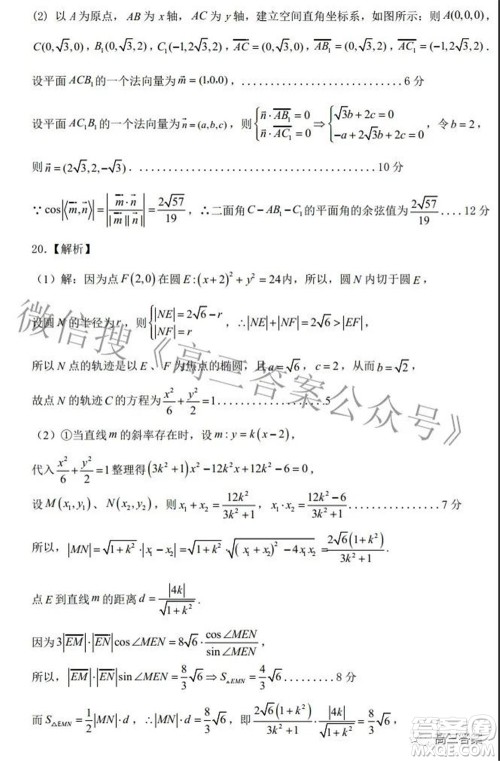 (2) 以 A 为原点，AB 为 x 轴，AC 为 y 轴，建立空间直角坐标系，如图所示：则 A(0,0,0)，
C(0,√3,0)，B₁(0,√3,2)，C₁(-1,2√3,2)，AC⃗=(0,√3,0)，AB₁⃗=(0,√3,2)，AC₁⃗=(-1,2√3,2)．
设平面 ACB₁ 的一个法向量为 m⃗=(1,0,0)，......................6 分
设平面 AC₁B₁ 的一个法向量为 n⃗=(a,b,c)，则 {n⃗·AB₁⃗=0, n⃗·AC₁⃗=0 ⇒ {√3b+2c=0, -a+2√3b+2c=0，令 b=2，
则 n⃗=(2√3,2,-√3)．......................10 分
∵ cos|⟨m⃗,n⃗⟩|=|m⃗·n⃗/(|m⃗||n⃗|)|=2√57/19，∴二面角 C－AB₁－C₁ 的平面角的余弦值为 2√57/19．....12 分
20.【解析】
（1）解：因为点 F(2,0) 在圆 E:(x+2)²+y²=24 内，所以，圆 N 内切于圆 E，
设圆 N 的半径为 r，则 {|NE|=2√6-r, |NF|=r，∴|NE|+|NF|=2√6>|EF|，
所以 N 点的轨迹是以 E、F 为焦点的椭圆，且 a=√6，c=2，从而 b=√2，
故点 N 的轨迹 C 的方程为 x²/6+y²/2=1................5
（2）①当直线 m 的斜率存在时，设 m:y=k(x-2)，
代入 x²/6+y²/2=1 整理得 (3k²+1)x²-12k²x+12k²-6=0，
设 M(x₁,y₁)、N(x₂,y₂)，则 x₁+x₂=12k²/(3k²+1)，x₁·x₂=(12k²-6)/(3k²+1)................7 分
所以，|MN|=√(1+k²)·|x₁-x₂|=√(1+k²)·√((x₁+x₂)²-4x₁x₂)=2√6(1+k²)/(3k²+1)．
点 E 到直线 m 的距离 d=|4k|/√(1+k²)．
因为 3|EM⃗|·|EN⃗|cos∠MEN=8√6·cos∠MEN/sin∠MEN
所以，|EM⃗|·|EN⃗|sin∠MEN=8/3√6⇒S△EMN=4/3√6.........8 分
而 S△EMN=1/2|MN|·d，∴|MN|·d=8/3√6，即 2√6(1+k²)/(3k²+1)·|4k|/√(1+k²)=8/3√6，
微信搜《高三答案公众号》
高三答案